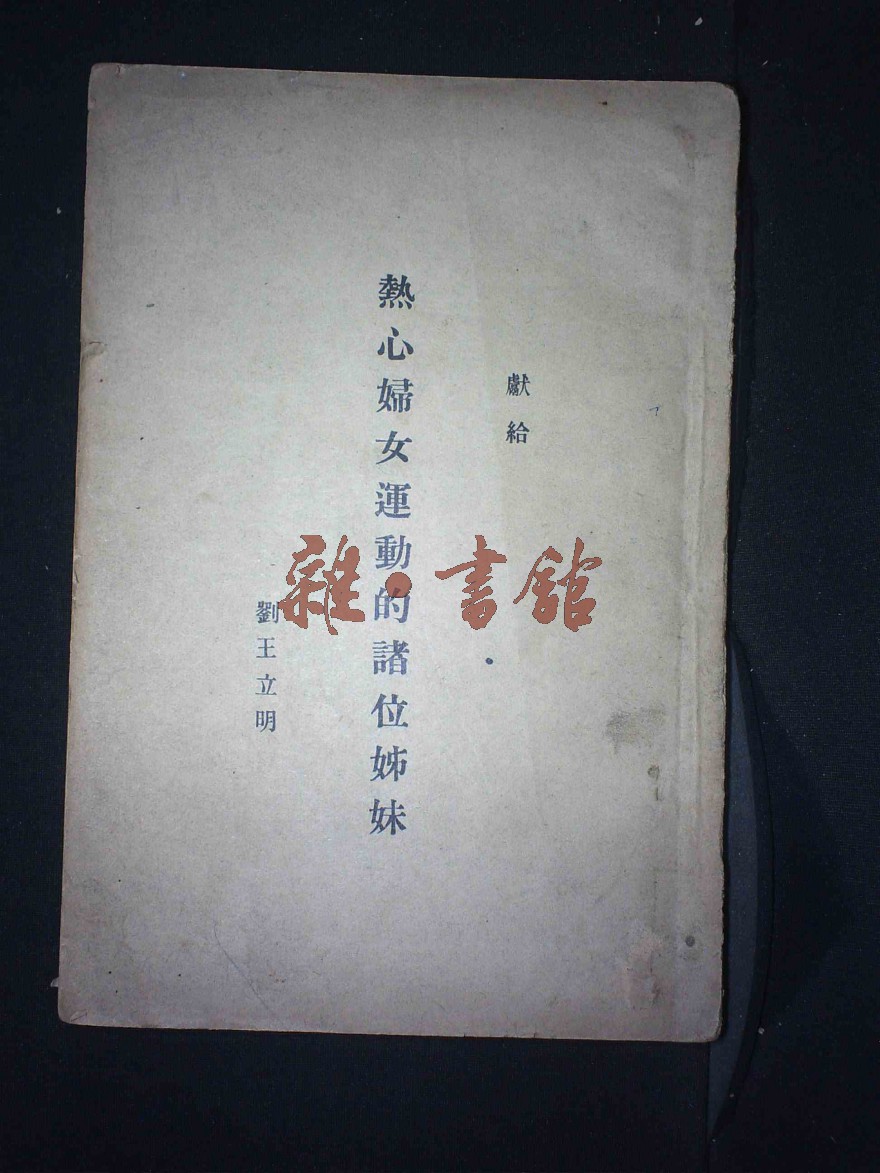 獻給
熱心婦女運動的諸位姊妹
劉王立明
雜·書館